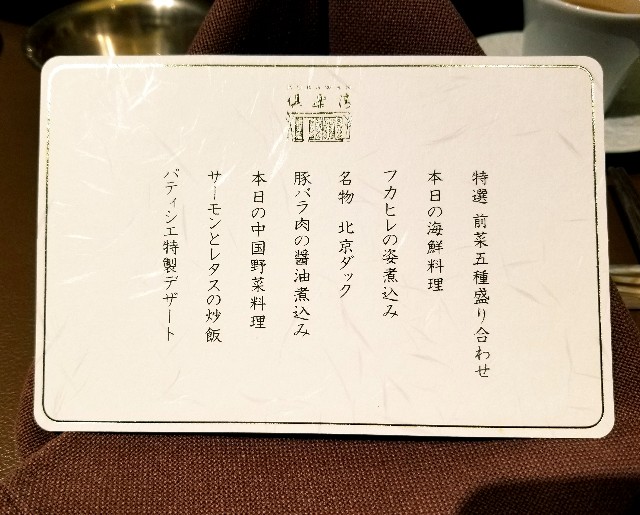 特選 前菜五種盛り合わせ
本日の海鮮料理
フカヒレの姿煮込み
名物 北京ダック
豚バラ肉の醤油煮込み
本日の中国野菜料理
サーモンとレタスの炒飯
パティシエ特製デザート